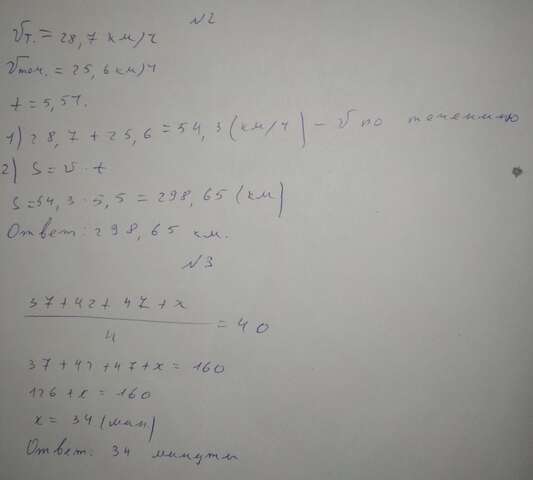 №2
Vт. = 28,7 км/ч
Vтеч. = 25,6 км/ч
t = 5,5ч.
1) 28,7 + 25,6 = 54,3 (км/ч) - V по течению
2) S = v · t
S = 54,3 · 5,5 = 298,65 (км)
Ответ: 298,65 км.
№3
37 + 42 + 47 + x
4
= 40
37 + 42 + 47 + x = 160
126 + x = 160
x = 34 (мин)
Ответ: 34 минуты